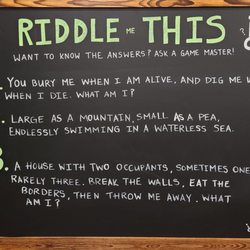 RIDDLE ME THIS
WANT TO KNOW THE ANSWERS? ASK A GAME MASTER!
YOU BURY ME WHEN I AM ALIVE, AND DIG ME
WHEN I DIE. WHAT AM I?
LARGE AS A MOUNTAIN, SMALL AS A PEA,
ENDLESSLY SWIMMING IN A WATERLESS SEA.
A HOUSE WITH TWO OCCUPANTS, SOMETIMES ONE
RARELY THREE. BREAK THE WALLS, EAT THE
BORDERS, THEN THROW ME AWAY. WHAT
AM I?